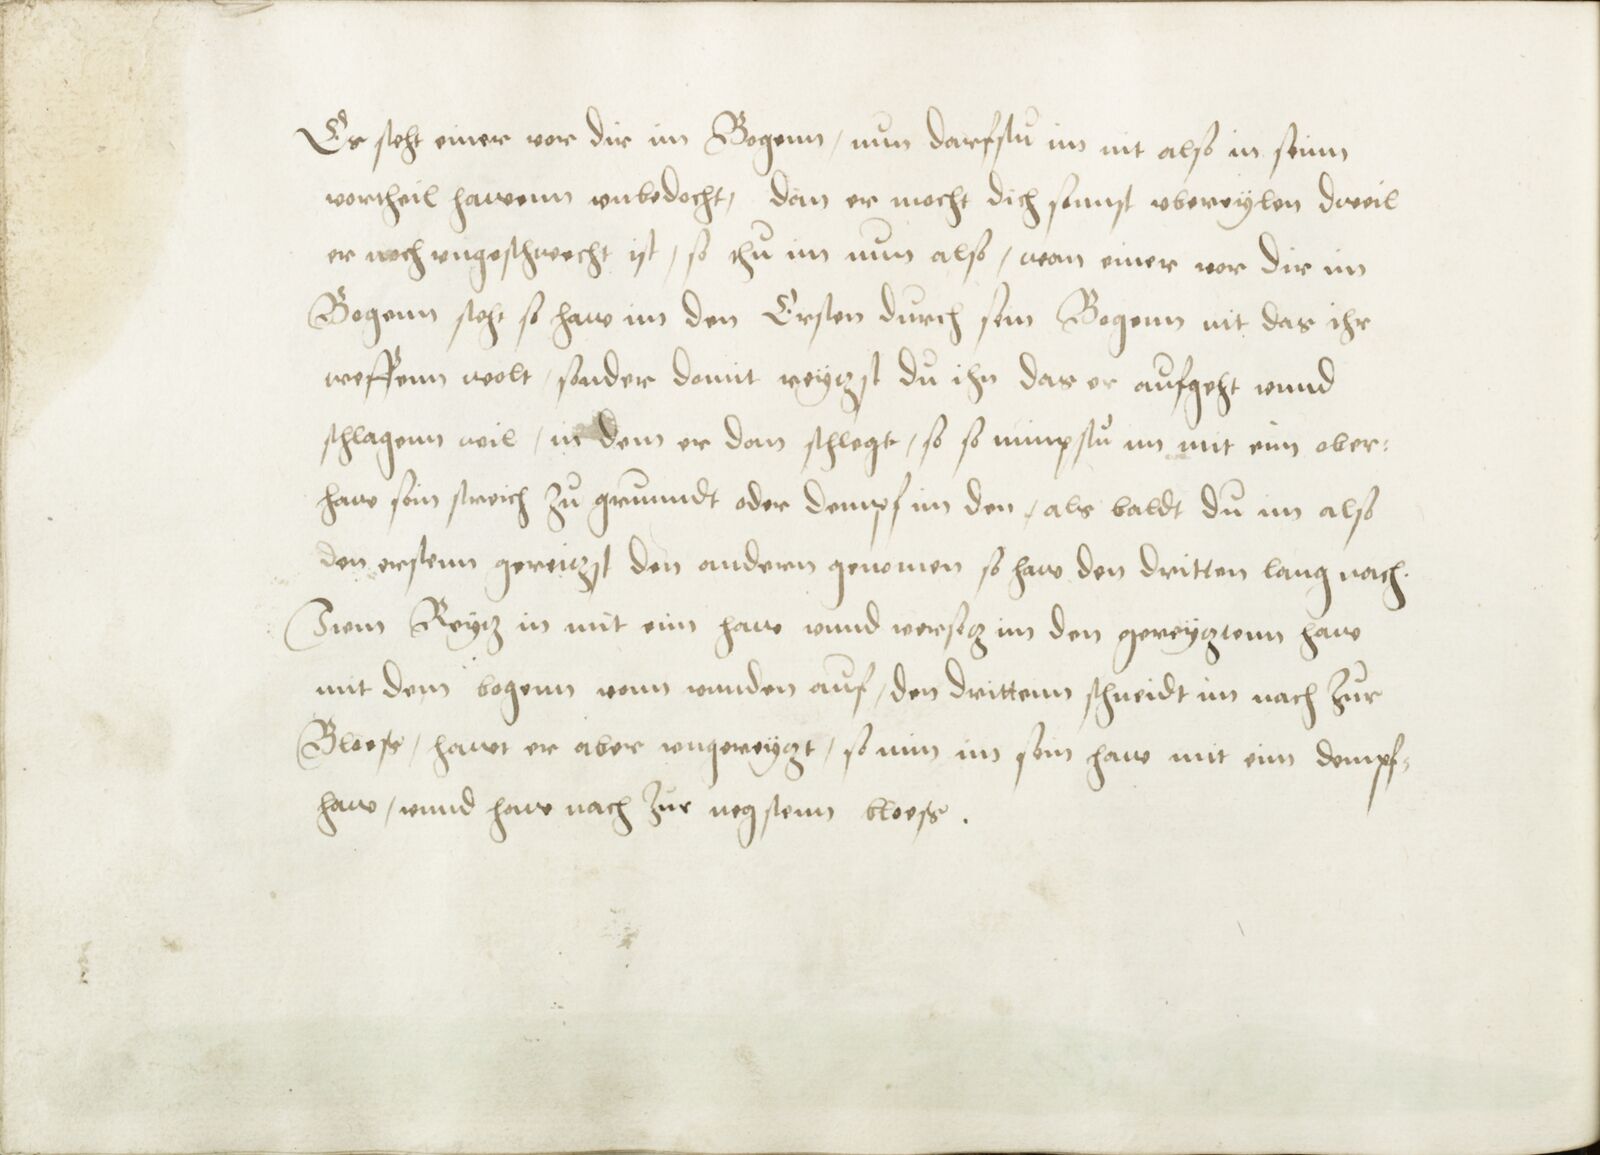 Es steht einer vor dir im Bogenn / nun darfstu im nit also in seinn
vortheil hawenn unbedocht / dan er mecht dich sonnst ubereylen dweil
er noch ungeschwecht ist / so thu im nun also / wan einer vor dir im
Bogenn steht so haw im den Ersten durch sein Bogenn nit das ihr
treffenn wolt / sonder domit reytzst du ihn das er aufgeht unnd
schlagenn wil / in dem er dan schlegt / so so nimpstu im mit eim ober=
haw sein streich zu grunndt oder dempf im den / als baldt du im also
den erstenn gereitzst den andern genomen so haw den dritten lang nach.
Item Reytz in mit eim haw unnd versetz im den gereytztenn haw
mit dem bogenn vonn unnden auf / den drittenn schneidt im nach zur
Bloess / hawt er aber ungereytzt / so nim im sein haw mit eim dempf=
haw / unnd haw nach zur negstenn bloess .